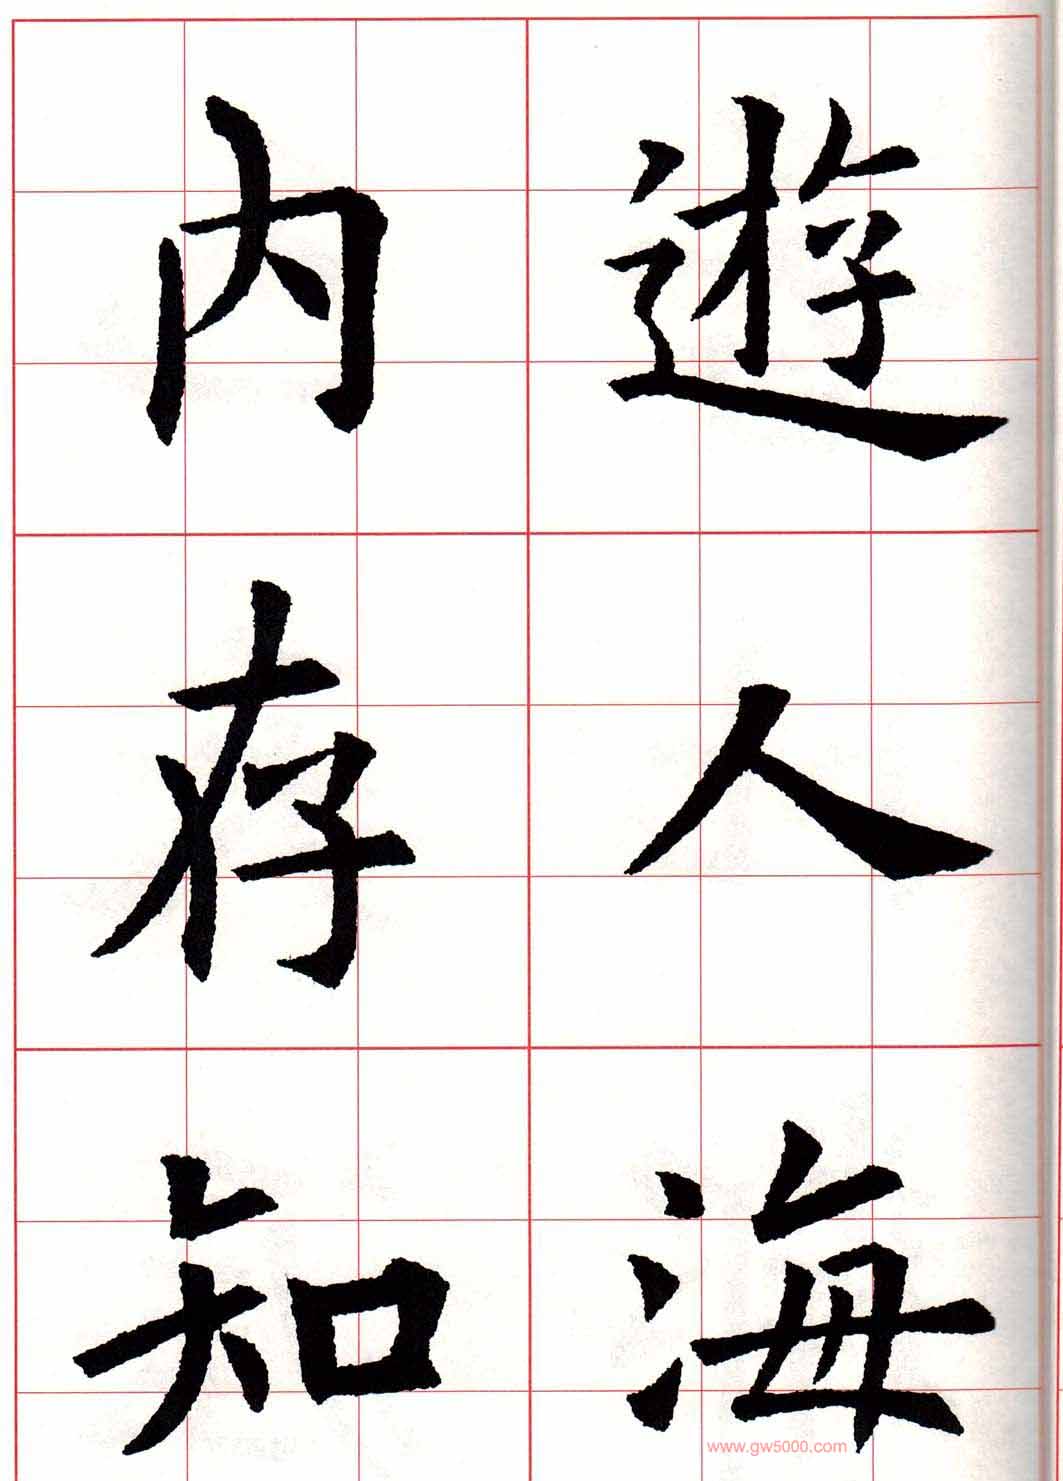 遊人海
內存知
www.gw5000.com